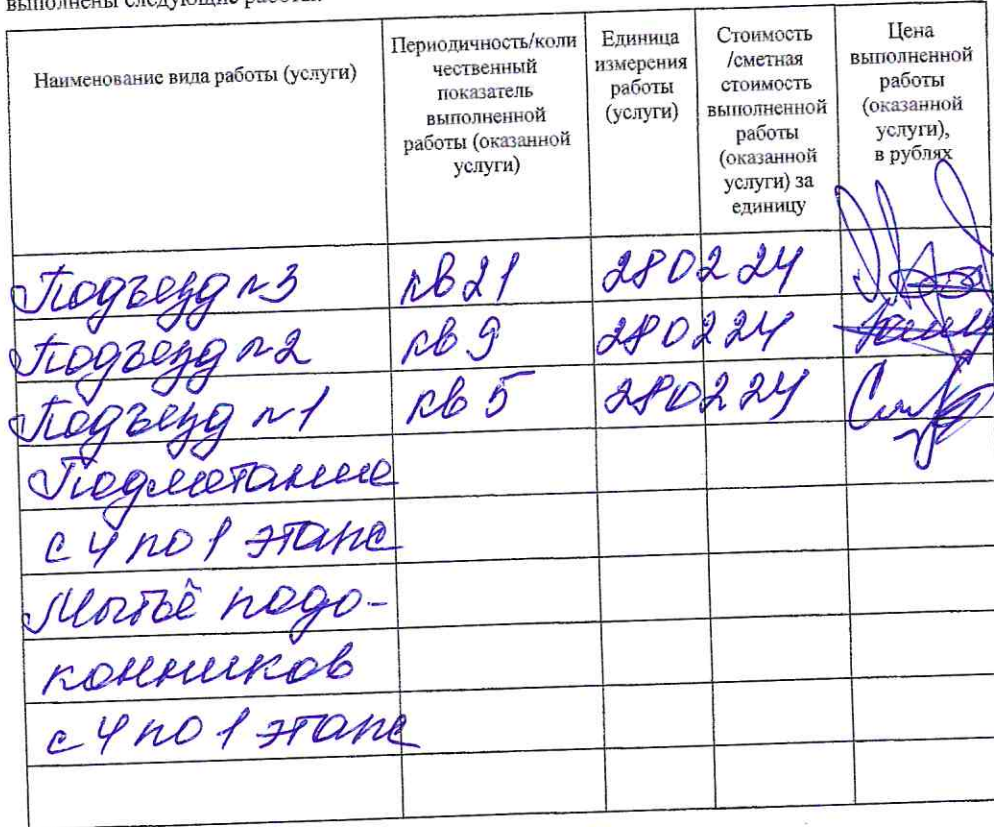 выполнены следующие работы:
Наименование вида работы (услуги)
Периодичность/коли
чественный
показатель
выполненной
работы (оказанной
услуги)
Единица
измерения
работы
(услуги)
Стоимость
/сметная
стоимость
выполненной
работы
(оказанной
услуги) за
единицу
Цена
выполненной
работы
(оказанной
услуги),
в рублях
Подъезд №3 кв 21 280224
Подъезд №2 кв 9 280224
Подъезд №1 кв 5 280224
Подметание
с 4 по 1 этаже
Мытьё подо-
конников
с 4 по 1 этаже